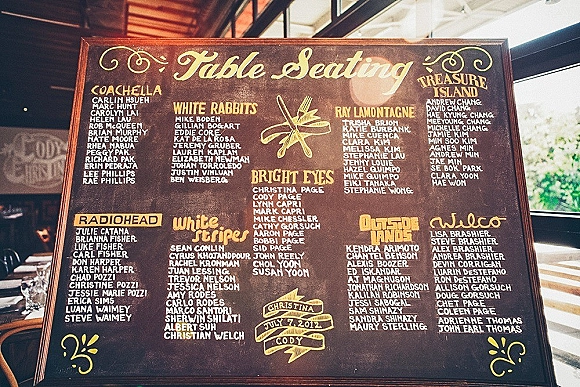 Table Seating
COACHELLA
CARLIN HSUEH
MARC HUNT
CAROLYN LAI
HELEN LAU
ROB MCQUEEN
BRIAN MURPHY
NATE MOORE
RHEA NABUA
PEGGY PAK
RICHARD PAK
ERIN PEDRAJA
LEE PHILLIPS
RAE PHILLIPS
WHITE RABBITS
MIKE BODEN
GILLIAN BOGART
EDDIE CORE
KAT DE LA ROSA
JEREMY GRUBER
LAUREN KAPLAN
ELIZABETH NEWMAN
JOHAN TORROLEDO
JUSTIN VINLUAN
BEN WEISBERG
BRIGHT EYES
CHRISTINA PAGE
CODY PAGE
LYNN CAPRI
MARK CAPRI
MIKE CHESSLER
CATHY GORSUCH
AARON PAGE
BOBBI PAGE
SID PAGE
JOHN REELY
CHOL YOON
SUSAN YOON
RAY LAMONTAGNE
TRISHA BROWN
KATIE BURBANK
MIKE CUENCA
CLARA KIM
MELISSA KIM
STEPHANIE LAU
JENNY LOUIE
HAZEL QUIMPO
MIKE QUIMPO
EIKI TANAKA
STEPHANIE WONG
TREASURE
ISLAND
ANDREW CHANG
DAVID CHANG
HAE KYUNG CHANG
MEEYOUNG CHANG
MICHELLE CHANG
JAMIE KIM
MIN SOO KIM
AGNES MIN
ANDREW MIN
JAE MIN
SE BOK PARK
CLARA YOON
HAE WON
RADIOHEAD
JULIE CATANA
BRIANNA FISHER
LUKE FISHER
CARL FISHER
DON HARPER
KAREN HARPER
CHAD POZZI
CHRISTINE POZZI
JESSIE MARIE POZZI
ERICA SIMS
LUANA WAIMEY
STEVE WAIMEY
White
Stripes
SEAN CONLIN
CYRUS KHOJANDPOUR
RACHEL KRONMAN
JUAN LESSING
TREVOR NELSON
JESSICA NELSON
AMY RODES
CARLO RODES
MARCO SANTORI
SHERWIN SHILATI
ALBERT SUH
CHRISTIAN WELCH
CHRISTINA
JULY 7, 2012
CODY
OUTSIDE
LANDS
KENDRA ARIMOTO
CHANTEL BENSON
ALEXIS BOOZER
ED ISKANDAR
AJ MAGNUSON
JONATHAN RICHARDSON
KALILAH ROBINSON
JESSI SABOGAL
SAM SHINAZY
SANDRA SHINAZY
MAURY STERLING
Wilco
LISA BRASHIER
STEVE BRASHIER
ALEX BRASHIER
ANDREA BRASHIER
DEVIN CORRIGAN
LUARIN DESTEFANO
TOM DESTEFANO
ALLISON GORSUCH
DOUG GORSUCH
CHET PAGE
COLEEN PAGE
ADRIENNE THOMAS
JOHN EARL THOMAS
CODY